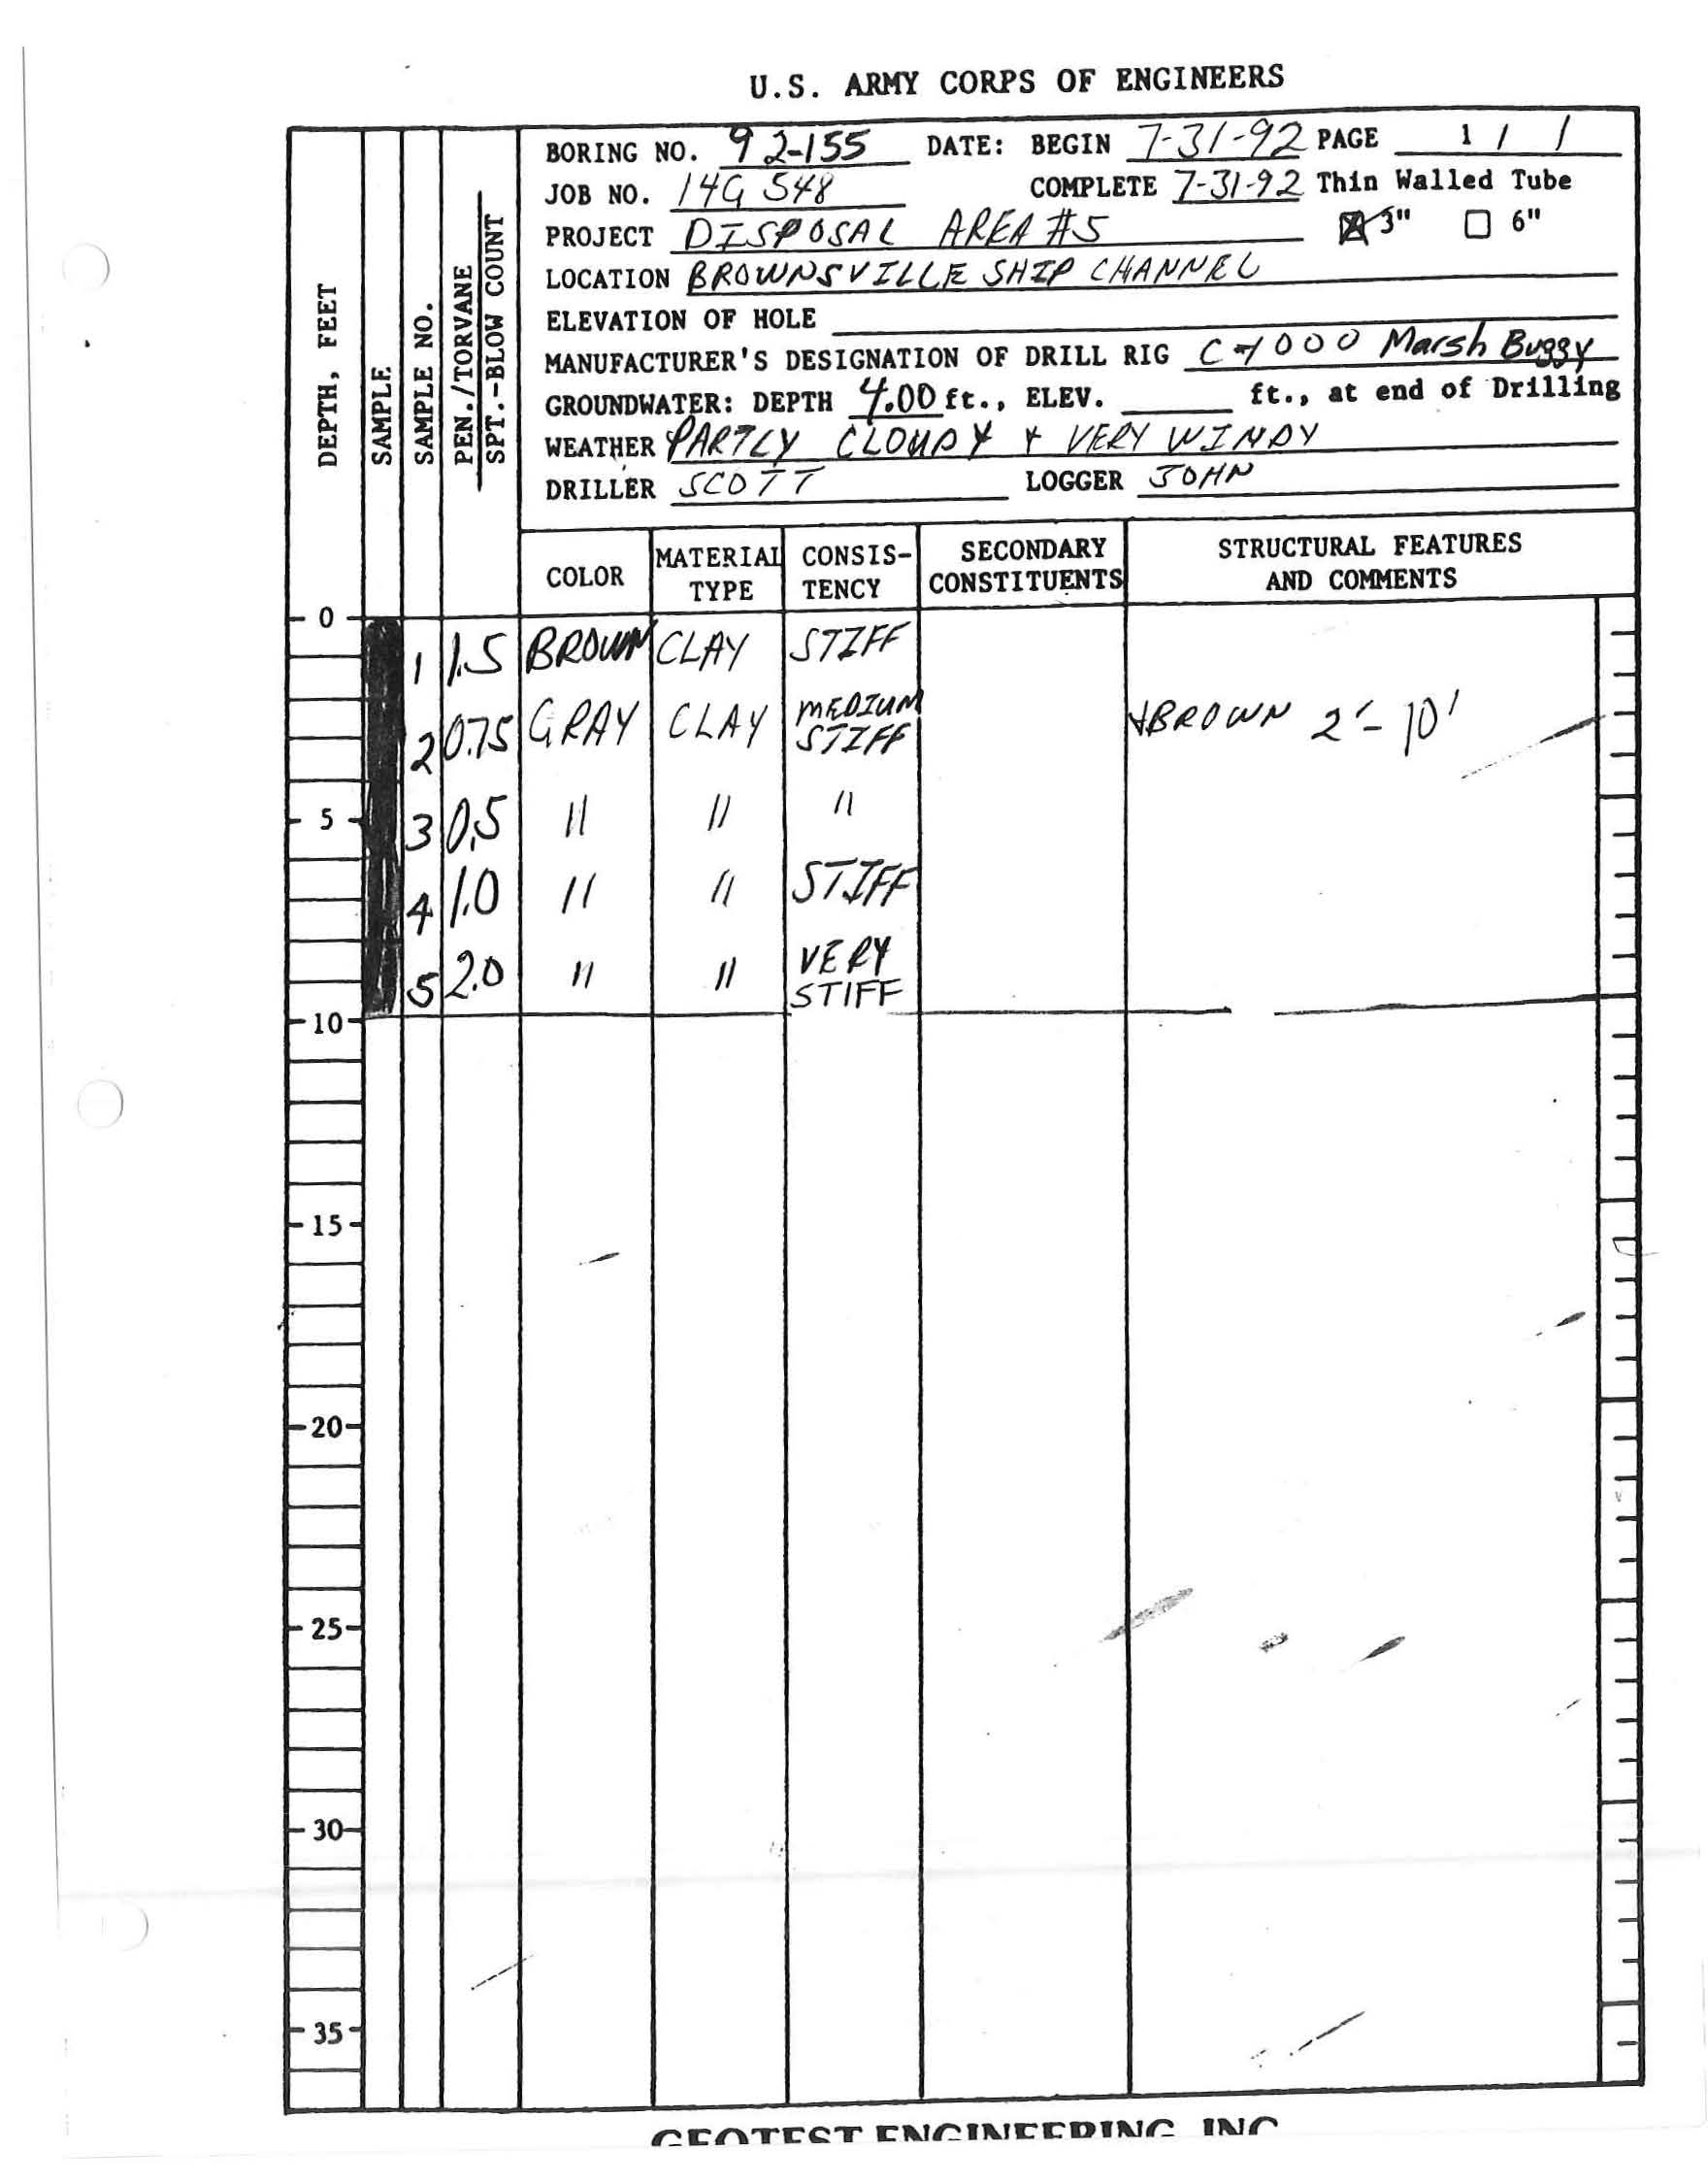 U.S. ARMY CORPS OF ENGINEERS
BORING NO. 92-155 DATE: BEGIN 7-31-92 PAGE 1 / 1
JOB NO. 14G 548 COMPLETE 7-31-92 Thin Walled Tube
PROJECT DISPOSAL AREA #5 3" 6"
LOCATION BROWNSVILLE SHIP CHANNEL
ELEVATION OF HOLE
MANUFACTURER'S DESIGNATION OF DRILL RIG C-1000 Marsh Buggy
GROUNDWATER: DEPTH 4.00 ft., ELEV. ft., at end of Drilling
WEATHER PARTLY CLOUDY + VERY WINDY
DRILLER SCOTT LOGGER JOHN
DEPTH, FEET
SAMPLE
SAMPLE NO.
PEN./TORVANE
SPT.-BLOW COUNT
COLOR
MATERIAL
TYPE
CONSIS-
TENCY
SECONDARY
CONSTITUENTS
STRUCTURAL FEATURES
AND COMMENTS
0
1 1.5 BROWN CLAY STIFF
2 0.75 GRAY CLAY MEDIUM
STIFF
BROWN 2'-10'
5
3 0.5 " " "
4 1.0 " " STIFF
5 2.0 " " VERY
STIFF
10
15
20
25
30
35
GEOTEST ENGINEERING, INC